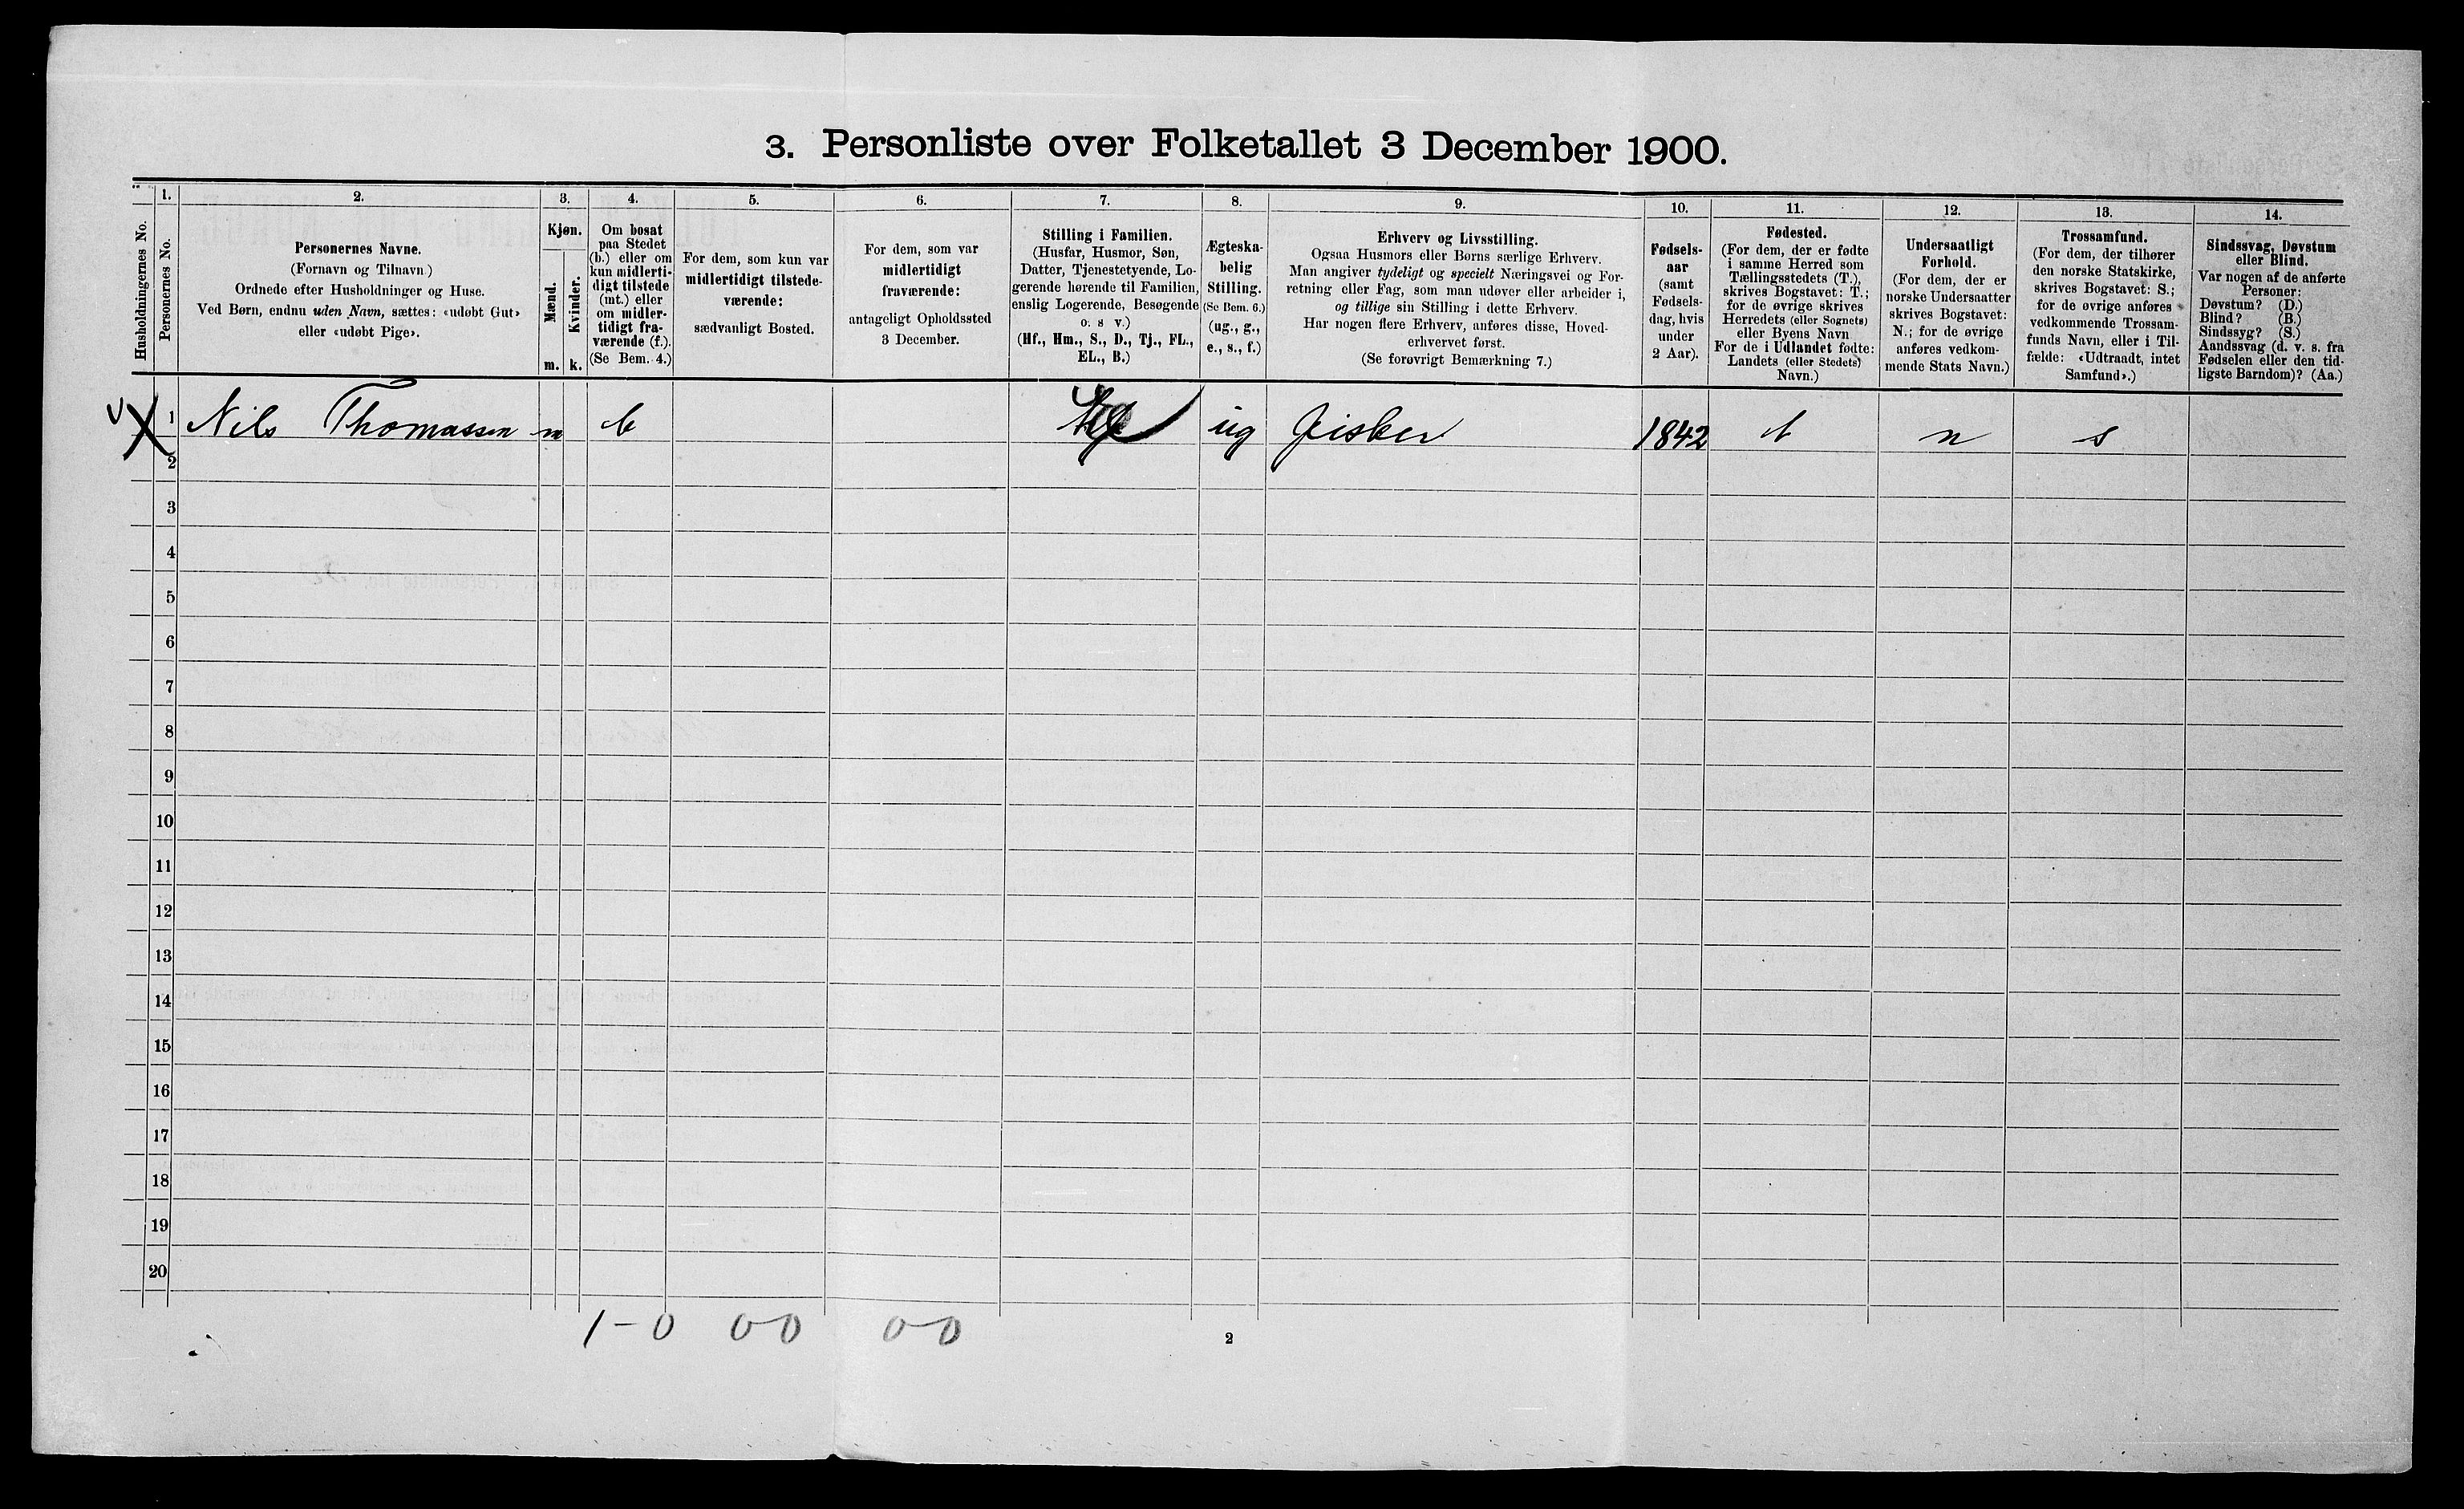 3. Personliste over Folketallet 3 December 1900.
1. 2. 3. 4. 5. 6. 7. 8. 9. 10. 11. 12. 13. 14.
Husholdningernes No.
Personernes No.
Personernes Navne.
(Fornavn og Tilnavn)
Ordnede efter Husholdninger og Huse.
Ved Børn, endnu uden Navn, sættes: «udøbt Gut»
eller «udøbt Pige».
Kjøn.
Mænd.
Kvinder.
m. k.
Om bosat
paa Stedet
(b.) eller om
kun midlerti-
digt tilstede
(mt.) eller
om midler-
tidigt fra-
værende (f.).
(Se Bem. 4.)
For dem, som kun var
midlertidigt tilstede-
værende:
sædvanligt Bosted.
For dem, som var
midlertidigt
fraværende:
antageligt Opholdssted
3 December.
Stilling i Familien.
(Husfar, Husmor, Søn,
Datter, Tjenestetyende, Lo-
gerende hørende til Familien,
enslig Logerende, Besøgende
o. s v.)
(Hf., Hm., S., D., Tj., FL.,
EL., B.)
Ægteska-
belig
Stilling.
(Se Bem. 6.)
(ug., g.,
e., s., f.)
Erhverv og Livsstilling.
Ogsaa Husmors eller Børns særlige Erhverv.
Man angiver tydeligt og specielt Næringsvei og For-
retning eller Fag, som man udøver eller arbeider i,
og tillige sin Stilling i dette Erhverv.
Har nogen flere Erhverv, anføres disse, Hoved-
erhvervet først.
(Se forøvrigt Bemærkning 7.)
Fødsels-
aar
(samt
Fødsels-
dag, hvis
under
2 Aar).
Fødested.
(For dem, der er fødte
i samme Herred som
Tællingsstedets (T.),
skrives Bogstavet: T.;
for de øvrige skrives
Herredets (eller Sognets)
eller Byens Navn
For de i Udlandet fødte:
Landets (eller Stedets)
Navn.)
Undersaatligt
Forhold.
(For dem, der er
norske Undersaatter
skrives Bogstavet:
N.; for de øvrige
anføres vedkom-
mende Stats Navn.)
Trossamfund.
(For dem, der tilhører
den norske Statskirke,
skrives Bogstavet: S.;
for de øvrige anføres
vedkommende Trossam-
funds Navn, eller i Til-
fælde: «Udtraadt, intet
Samfund».)
Sindssvag, Døvstum
eller Blind.
Var nogen af de anførte
Personer:
Døvstum? (D.)
Blind? (B.)
Sindssyg? (S.)
Aandssvag (d. v. s. fra
Fødselen eller den tid-
ligste Barndom)? (Aa.)
1 Nils Thomassen m b ug fisker 1842 t n s
2
3
4
5
6
7
8
9
10
11
12
13
14
15
16
17
18
19
20
1-0 0-0 0-0
2